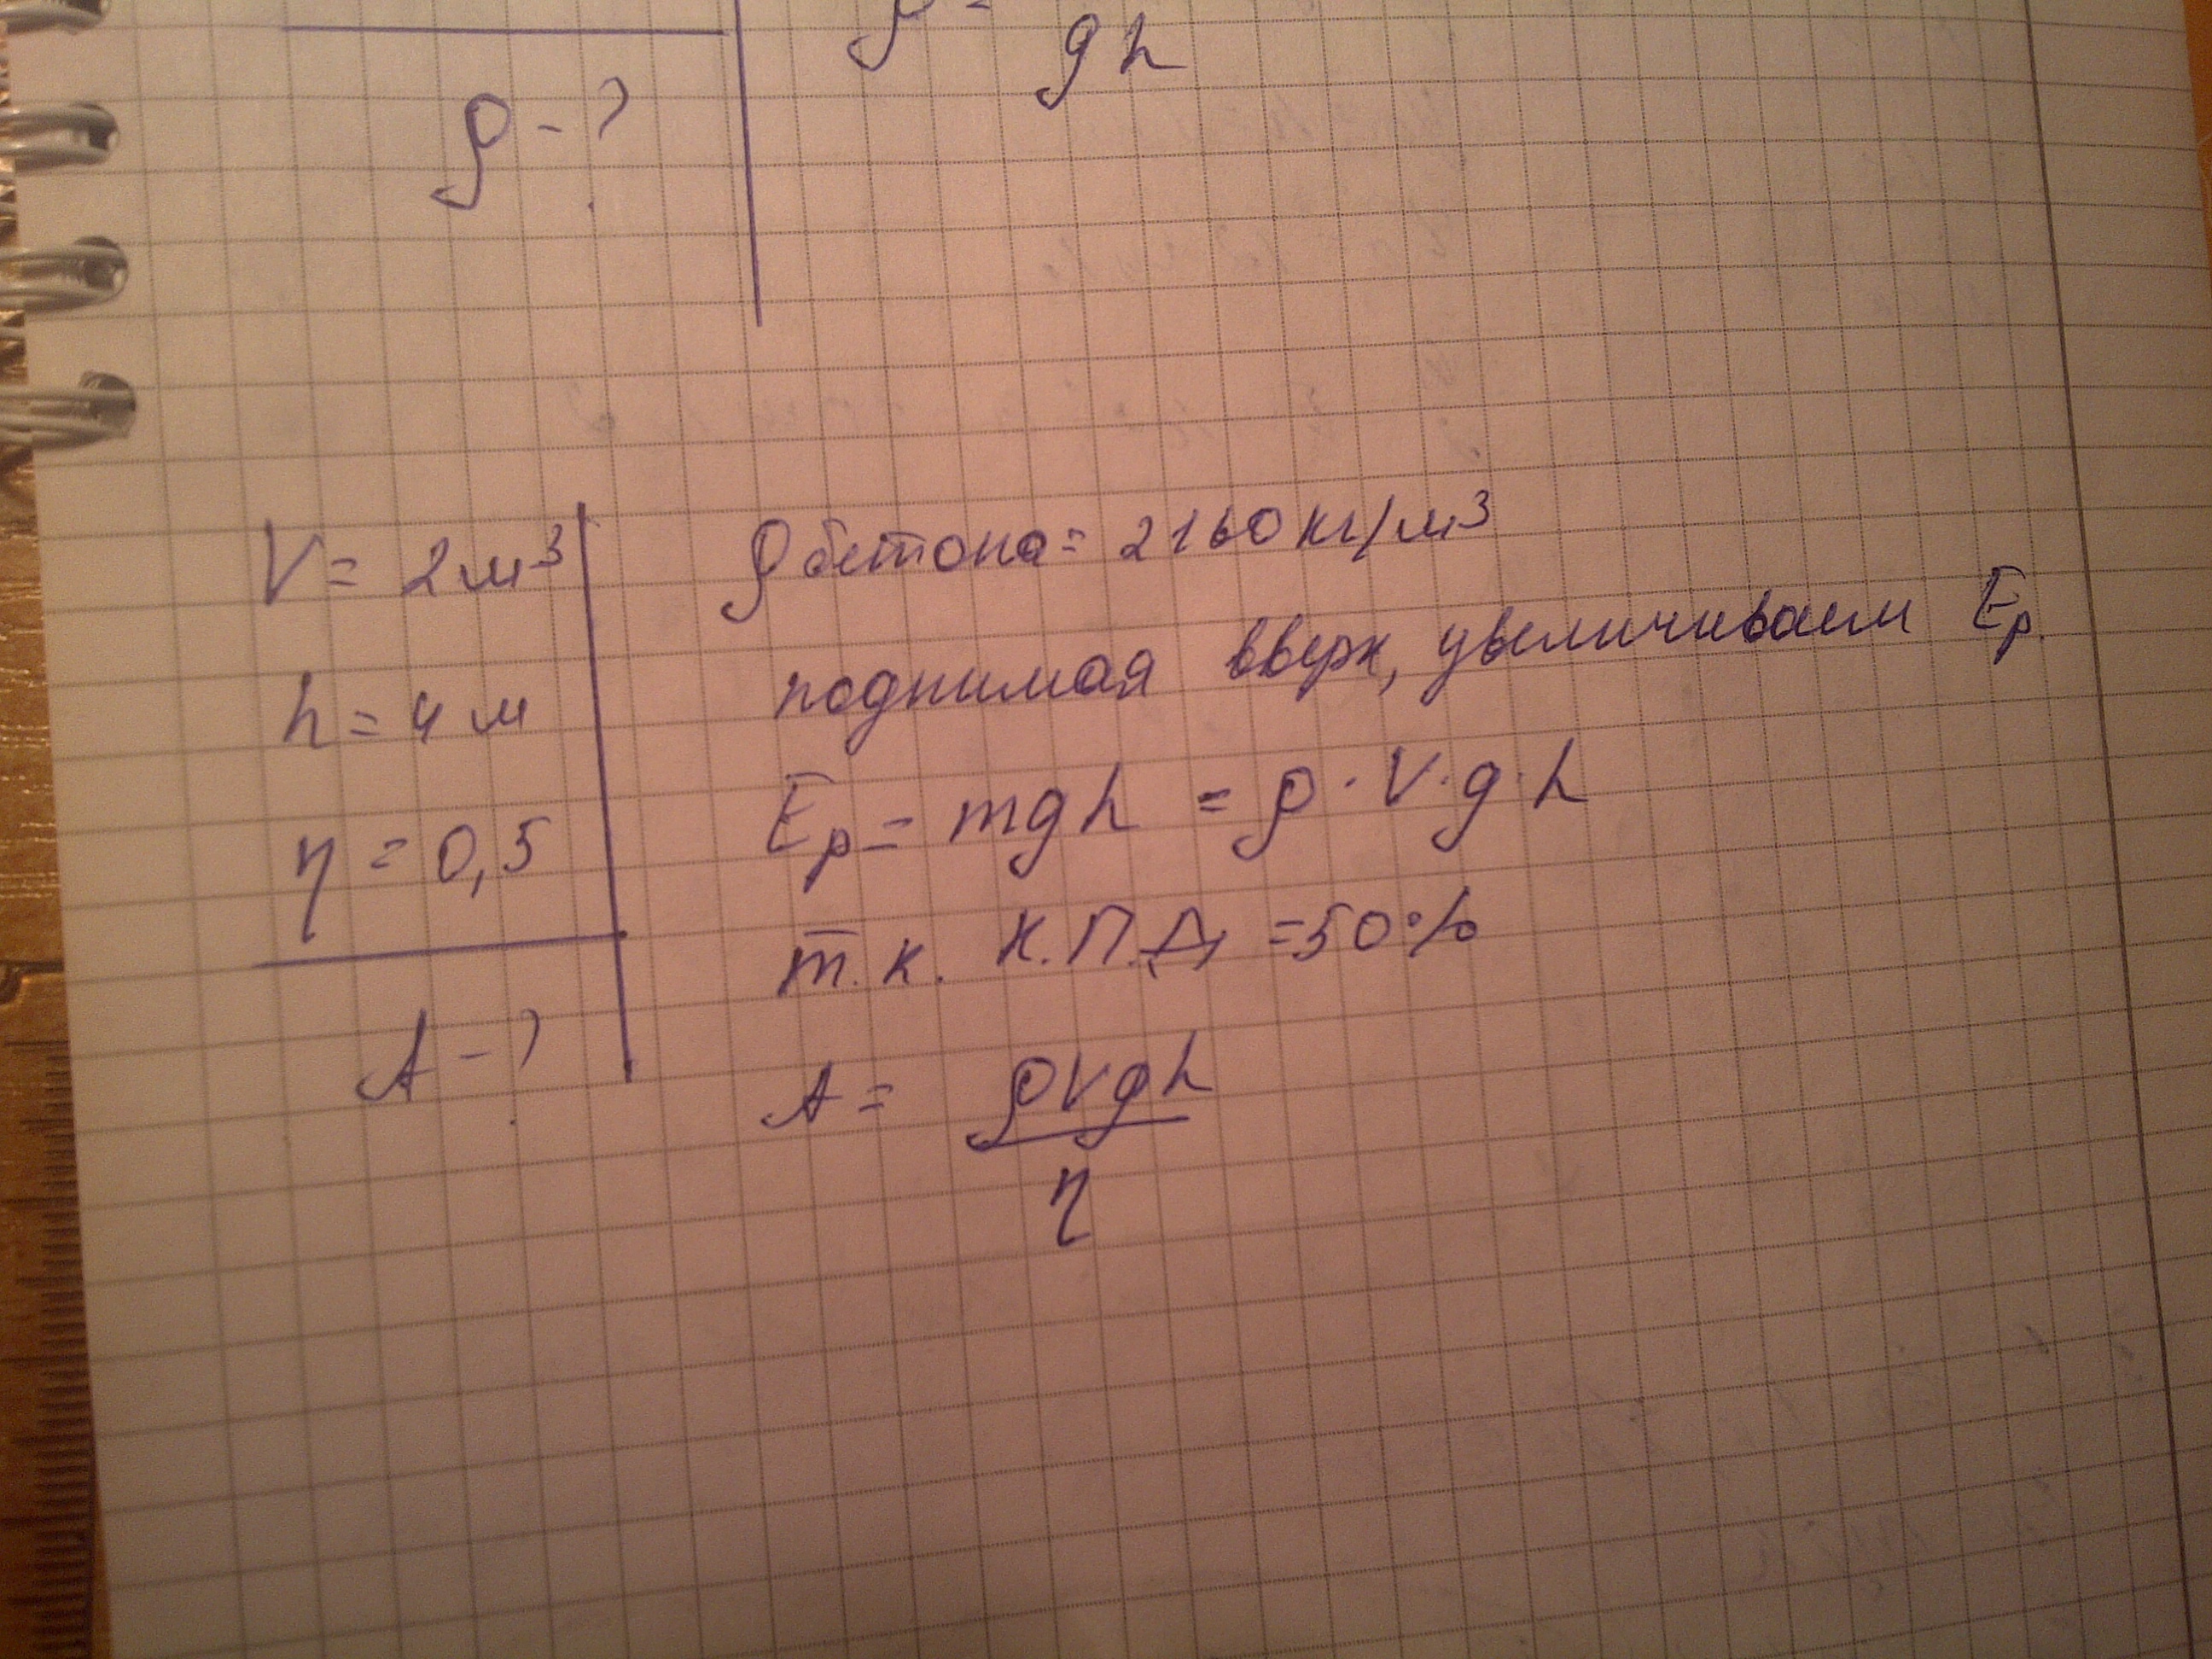 ρ =
gh
ρ - ?
V = 2 м³
h = 4 м
η = 0,5
A - ?
ρ бетона = 2160 кг/м³
поднимая вверх, увеличиваем Eр.
Eр = mgh = ρ · V · g · h
т.к. К.П.Д = 50%
A = ρVgh
η